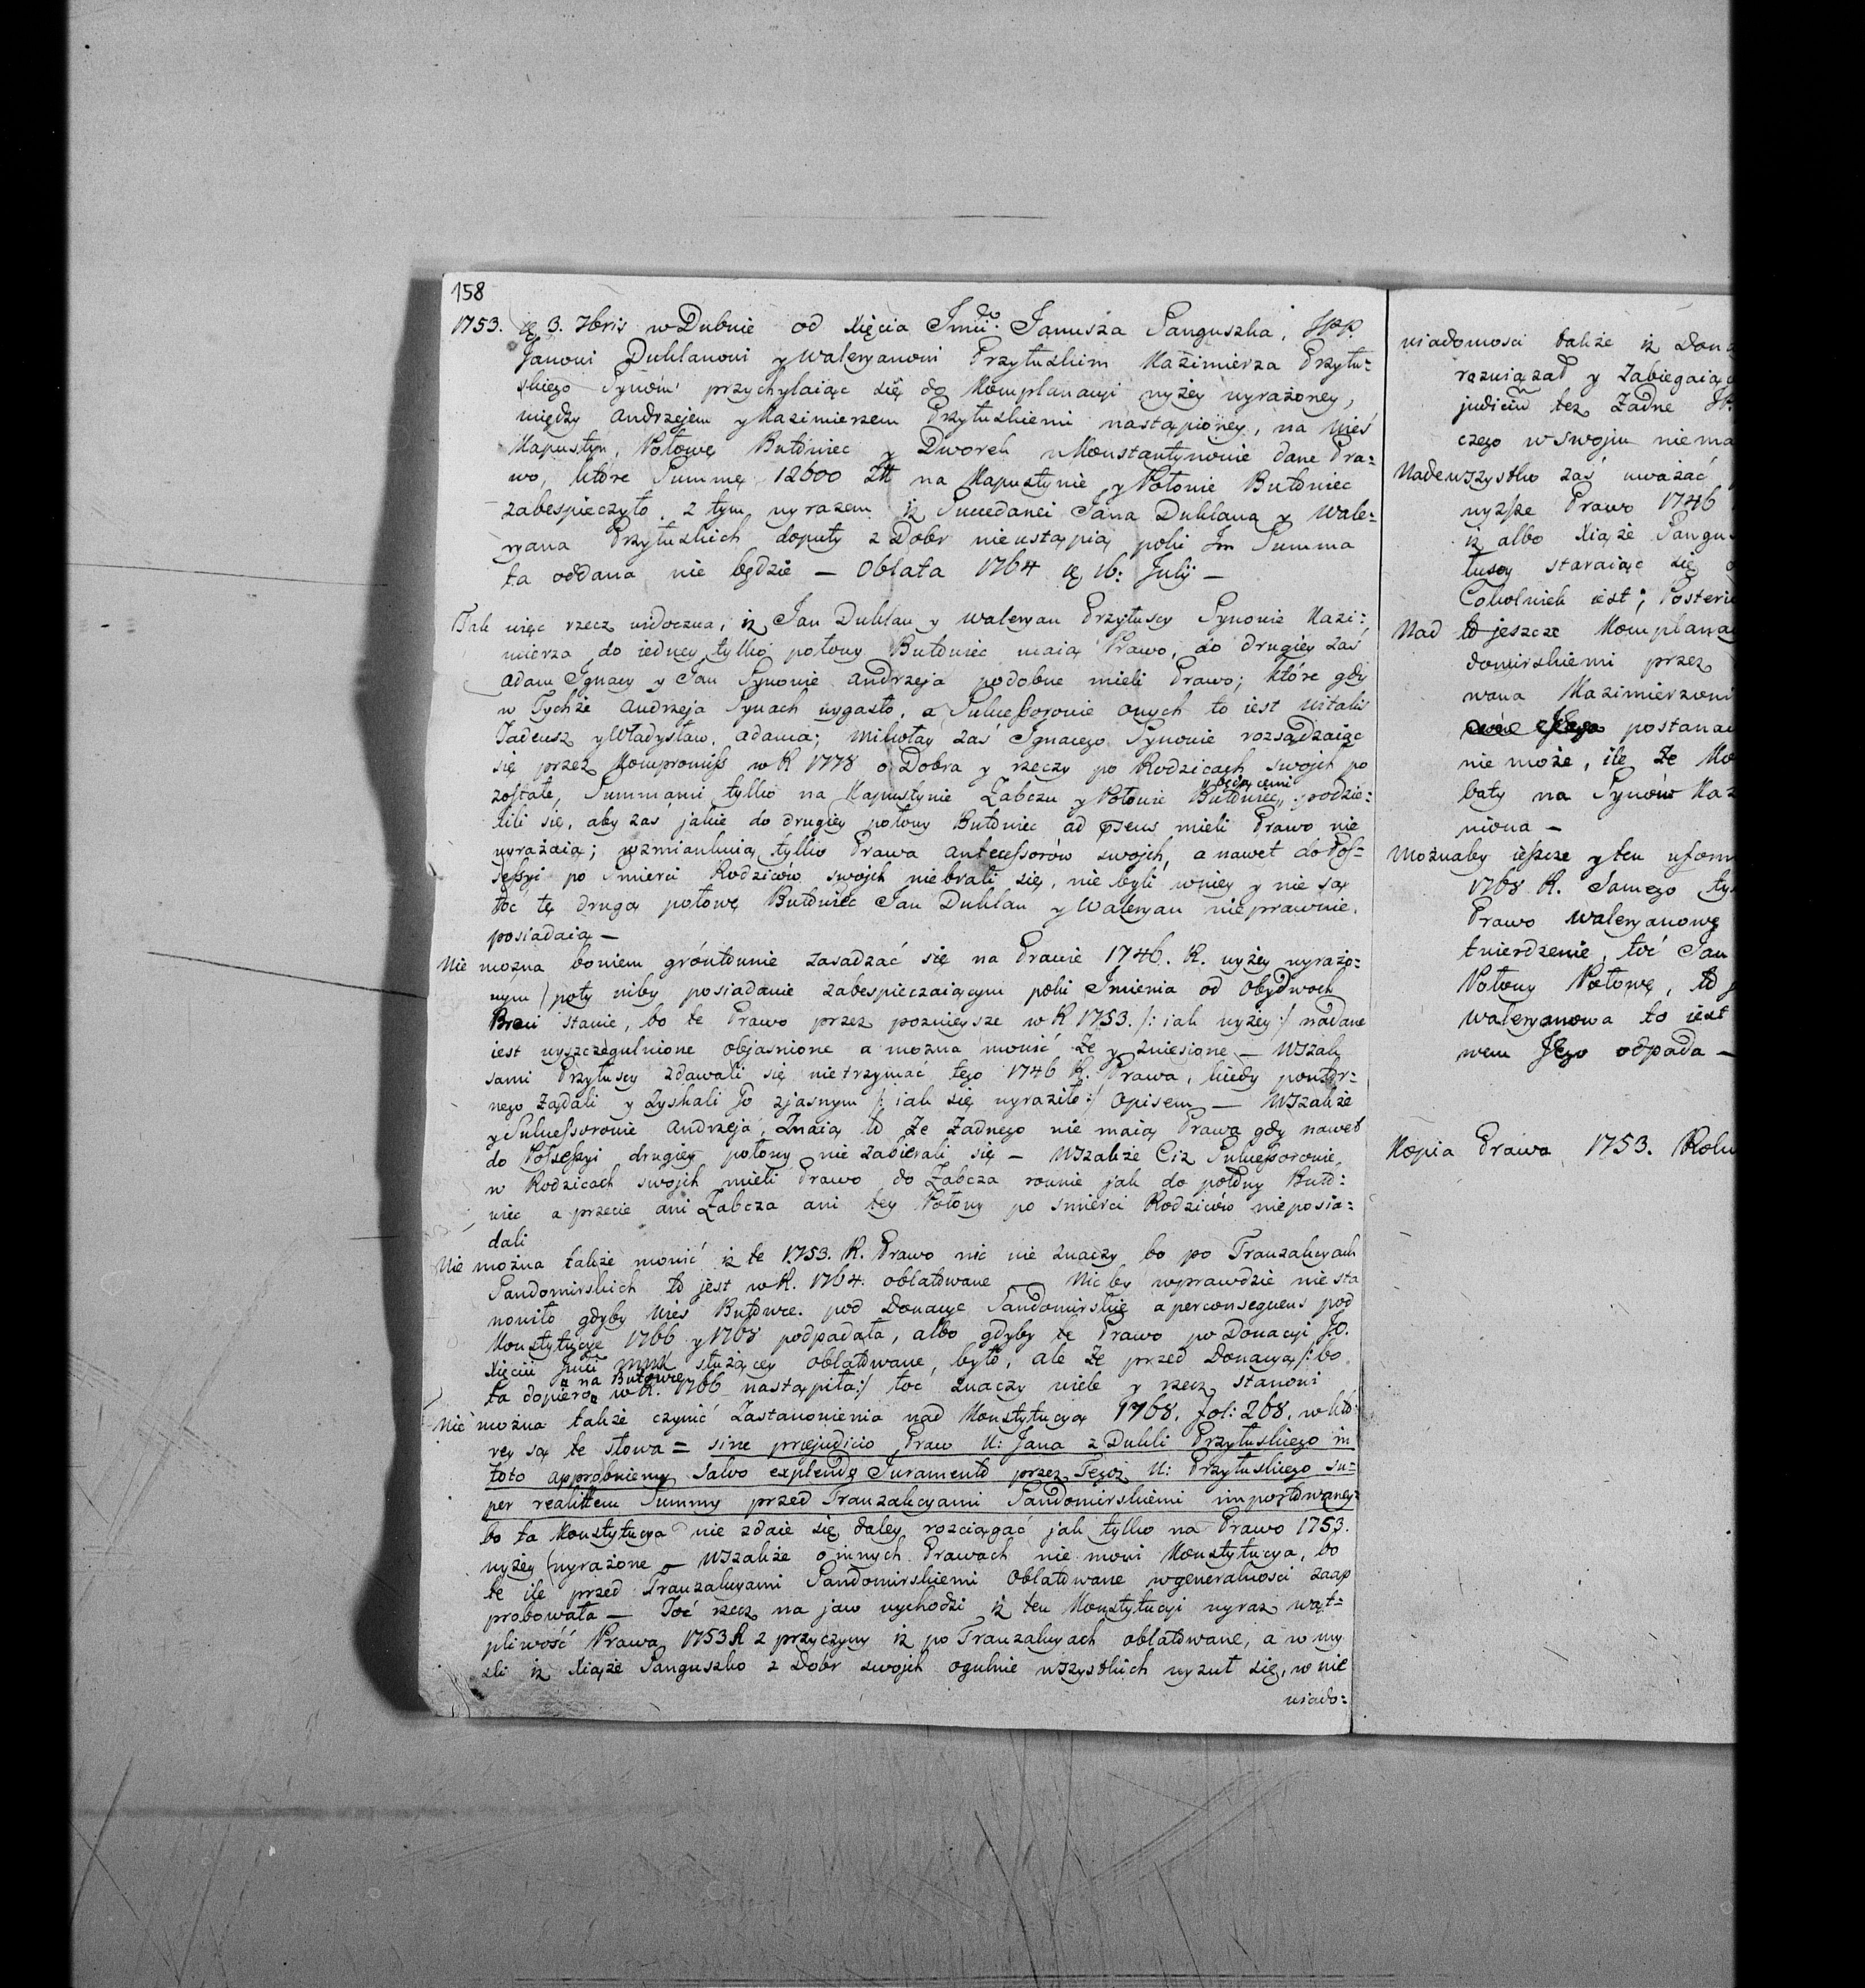 158
1753. 3. 7bris w Dubnie od Xięcia Jmci Janusza Sanguszka, JPP.
Janowi Duklanowi y Waleryanowi Przyłuskim Kazimierza Przyłu=
skiego Synom przychylaiąc się do Komplanacyi wyżey wyrażoney,
między Andrzejem y Kazimierzem Przyłuskiemi nastąpioney, na Wieś
Kapustyn, Połowę Butowiec y Dworek w Konstantynowie dane Pra=
wo, które Summę 12600 na Kapustynie y Połowie Butowiec
zabespieczyło, z tym wyrazem iż Sukcedanei Jana Duklana y Wale=
ryana Przyłuskich doputy z Dobr nie ustąpią poki Im Summa
ta oddana nie będzie — Oblata 1764 16: July —
Tak więc rzecz widoczna, iż Jan Duklan y Waleryan Przyłuscy Synowie Kazi=
mierza do iedney tylko połowy Butowiec maią Prawo, do drugiey zaś
Adam Ignacy y Jan Synowie Andrzeja podobne mieli Prawo; które gdy
w Tychże Andrzeja Synach wygasło, a Sukcessorowie onych to iest Witalis
Tadeusz y Władysław, Adama; Mikołay zaś Ignacego Synowie rozsądzaiąc
się przez Kompromiss w R 1778 o Dobra y rzeczy po Rodzicach swojch po
zostałe, Summami tylko na Kapustynie Żabczu y Połowie Butowiec będącemi podzie=
lili się, aby zaś jakie do drugiey połowy Butowiec ad mieli Prawo nie
wyrażaią; wzmiankuią tylko Prawa Antecessorów swojch, a nawet do Pos=
sessyi po Smierci Rodziców swojch nie brali się, nie byli w niey y nie są
toć tę drugą połowę Butowiec Jan Duklan y Waleryan nieprawnie
posiadaią —
Nie można bowiem gróntownie zasadzać się na Prawie 1746. R. wyżey wyrażo=
nym poty niby posiadanie zabespieczaiącym poki Imienia od Obydwoch
Braci stanie, bo te Prawo przez poznieysze w R 1753. /: iak wyżey :/ nadane
iest wyszczegulnione objasnione a można mowić Że y zniesione — Wszak
sami Przyłuscy zdawali się nietrzymać tego 1746 R. Prawa, kiedy powtór=
nego Żądali y Zyskali Jo z jasnym /: iak się wyraziło :/ Opisem — Wszakże
y Sukcessorowie Andrzeja, Znaią to Że Żadnego nie maią Prawa gdy nawet
do Possessyi drugiey połowy nie zabierali się — Wszakże Ciż Sukcessorowie
w Rodzicach swojch mieli Prawo do Żabcza rownie jak do połowy Buto=
wiec a przecie ani Żabcza ani tey Połowy po smierci Rodziców nieposia=
dali
Nie można także mowić iż te 1753. R. Prawo nic nie znaczy bo po Tranzakcyach
Sandomirskich to jest w R. 1764. oblatowane — Nic by wprawdzie nie sta
nowiło gdyby Wieś Butowce pod Donacye Sandomirskie a per consequens pod
Konstytucye 1766 y 1768 podpadała, albo gdyby te Prawo po Donacyi J.O.
Xięciu Jmci służącey oblatowane było, ale Że przed Donacyą /: bo
ta dopiero a na Butowce w R. 1766 nastąpiła :/ toć znaczy wiele y rzecz stanowi
Nie można także czynić Zastanowienia nad Konstytucyą 1768. fol: 268. w któ
rey są te słowa = sine prejudicio Praw U: Jana z Dukli Przyłuskiego in
toto approbuiemy salvo explendo Juramento przez Tegoż U: Przyłuskiego su=
per realitatem Summy przed Tranzakcyami Sandomirskiemi importowaney=
bo ta Konstytucya nie zdaie się daley rozciągać jak tylko na Prawo 1753.
wyżey wyrażone — Wszakże o innych Prawach nie mowi Konstytucya, bo
te ile przed Tranzakcyami Sandomirskiemi Oblatowane w generalnosci zaap
probowała — Toć rzecz na jaw wychodzi iż ten Konstytucyi wyraz wąt=
pliwość Prawa 1753 R z przyczyny iż po Tranzakcyach oblatowane, a w my
sli iż Xiąże Sanguszko z Dobr swojch ogulnie wszystkich wyzuł się, w nie
wiado=
wiadomosci także iż Dona
rozwiązał y Zabiegaiąc
judicium tez Żadne
czego w swojm niema
Nadewszystko zaś uważać
wyższe Prawo 1746
iż albo Xiąże Sangu
łuscy staraiąc się
Cokolwiek iest;
Nad to jeszcze Komplanac
domirskiemi przez
wana Kazimierzowi
postanaw
nie może, ile Że
baty na Synów Kaz
niona —
Możnaby ieszcze y ten uform
1768 R. Samego
Prawo Waleryanowe
twierdzenie, toć Jan
Połowy Połowę, to
Waleryanowa to iest
wem Jego odpada —
Kopia Prawa 1753. Roku